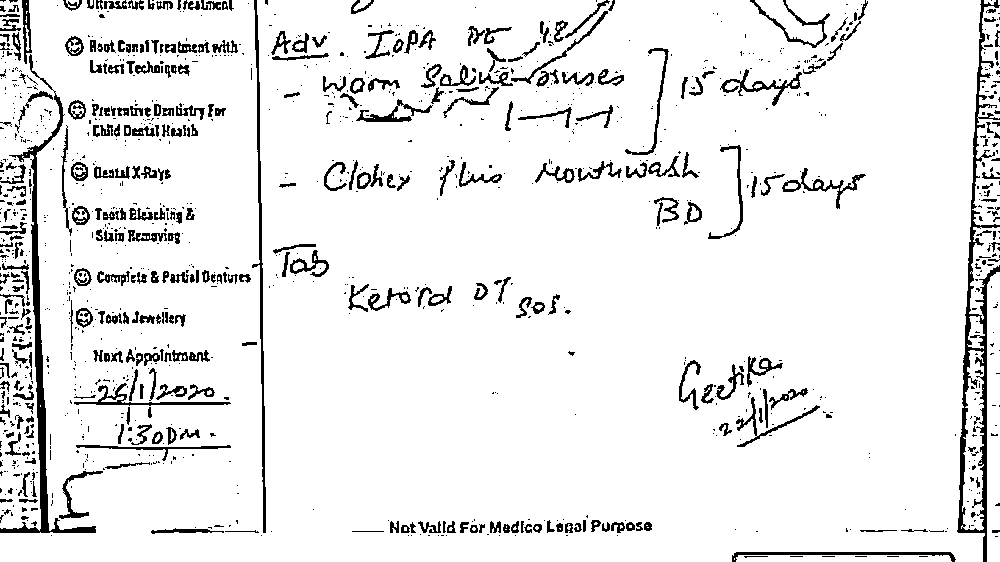 Ultrasonic Gum Treatment
Root Canal Treatment with
Latest Techniques
Preventive Dentistry For
Child Dental Health
Dental X-Rays
Tooth Bleaching &
Stain Removing
Complete & Partial Dentures
Tooth Jewellery
Next Appointment
1:30pm.
Adv. IOPA 48
- Warm Saline rinses ] 15 days.
1-1-1
- Clohex Plus Mouthwash ] 15 days
BD
Tab
Ketorol DT sos.
Geetika
22/1/2020
Not Valid For Medico Legal Purpose